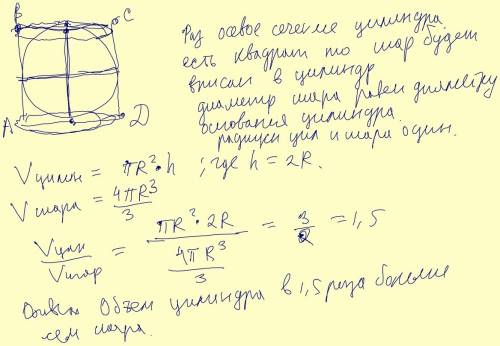 B
C
A
D
Раз осевое сечение цилиндра
есть квадрат то шар будет
вписан в цилиндр
диаметр шара равен диаметру
основания цилиндра.
радиусы цил и шара один.
V цилин = πR²·h ; где h = 2R.
V шара = 4πR³/3
Vцил/Vшар = πR²·2R / (4πR³/3) = 3/2 = 1,5
Объем цилиндра в 1,5 раза больше
чем шара.